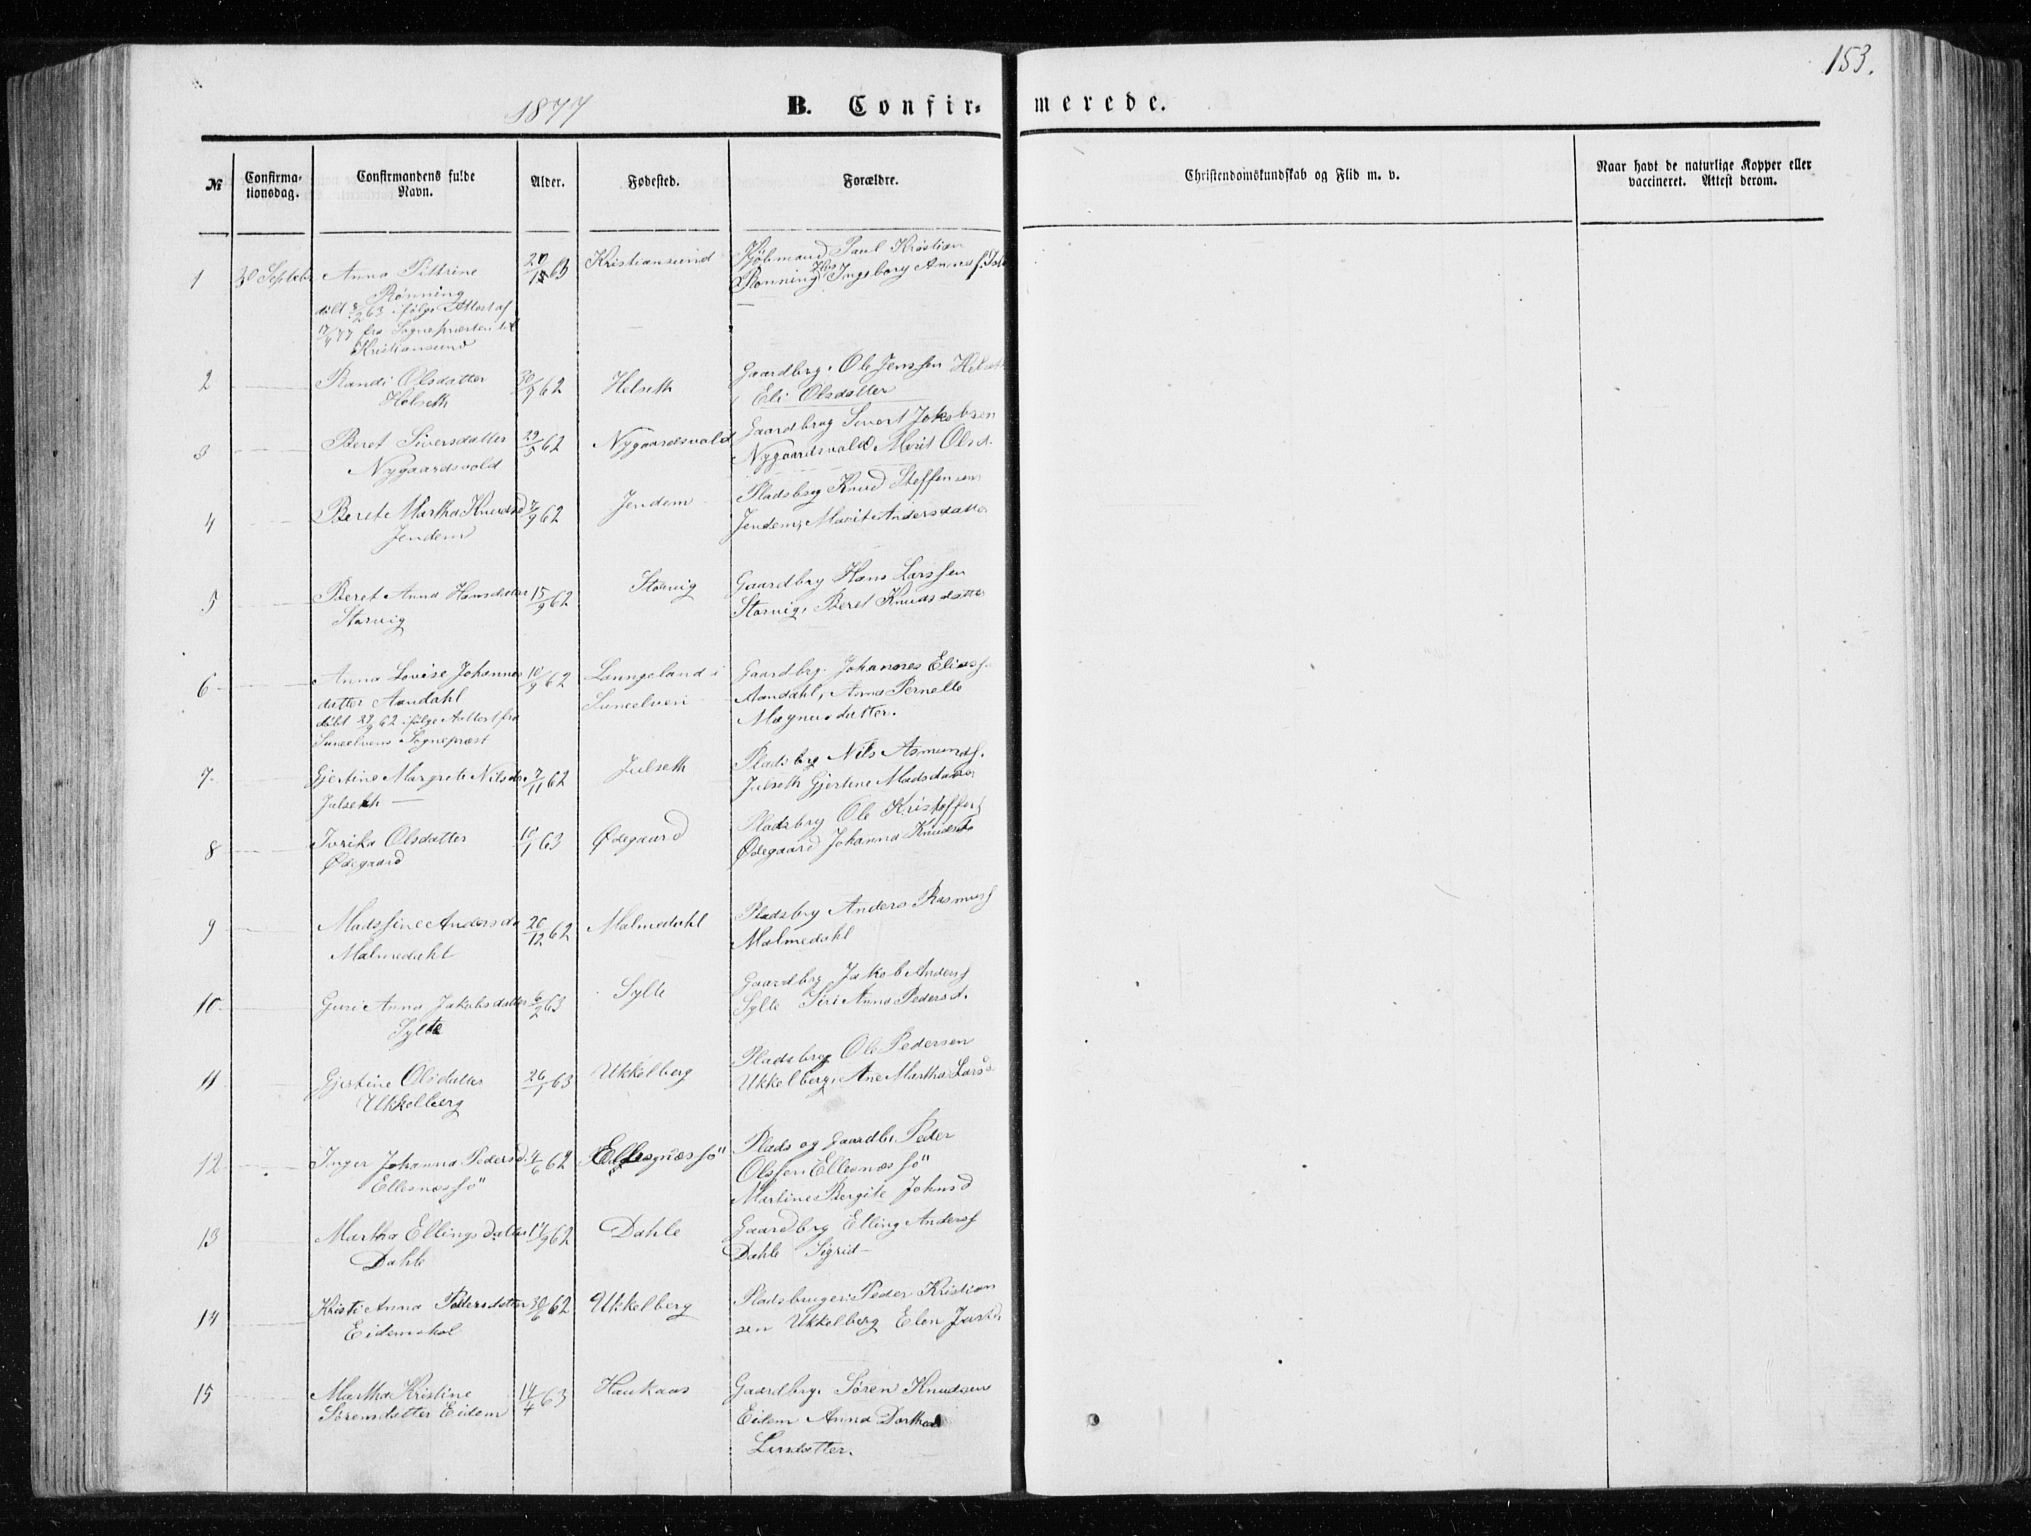 153.
1877 B. Confirmerede.
№ Confirmationsdag. Confirmandens fulde Navn. Alder. Fødested. Forældre. Christendomskundskab og Flid m. v. Naar havt de naturlige Kopper eller vaccineret. Attest derom.
1 30 Septebr Anna Pettrine 63 Kristiansund Kjöbmand Paul Kristian
Rønning Rønning Ingeborg Anna
døbt 8/2 63 ifølge Attest af
17/4 77 fra Sognepræsten til
Kristiansund
2 Randi Olsdatter 62 Helseth Gaardbrg. Ole Jenssen Helseth
Helseth Eli Olsdatter
3 Beret Siversdatter 29/5 62 Nygaardsvold Gaardbrug Sivert Jakobsen
Nygaardsvold Nygaardsvold Marit Olsd.
4 Beret Martha Knudsd 7/9 62 Jendem Pladsbrg Knud Steffensen
Jendem Jendem, Marit Andersdatter
5 Beret Anna Hansdatter 15/9 62 Storvig Gaardbrg Hans Larssen
Storvig Storvig, Beret Knudsdatter
6 Anna Lovise Johannes 10/9 62 Langeland i Gaardbrg. Johannes Eliass.
datter Aandahl Sunelven Aandahl, Anna Pernelle
døbt 29/9 62 ifølge Attest fra Magnusdatter.
Sunelvens Sognepræst
7. Gjertine Margrete Nilsdr. 7/11 62 Julseth Pladsbrg Nils Asmunds.
Julseth Julseth Gjertine Madsdatter
8 Ivrika Olsdatter 10/1 63 Ødegaard Pladsbrg Ole Kristoffers
Ødegaard Ødegaard Johanna Knudsd
9 Madssine Andersda 26/12 62 Malmedahl Pladsbrg Anders Rasmuss
Malmedahl Malmedahl
10 Guri Anna Jakobsdatter 6/2 63 Sylte Gaardbrg Jakob Anders
Sylte Sylte Siri Anna Pedersd.
11 Gjertine Olsdatter 26/1 63 Ukkelberg Pladsbrg Ole Pedersen
Ukkelberg Ukkelberg, Ane Martha Larsd
12 Inger Johanna Pedersd. 4/6 62 Ellesnæssjö Plads og Gaardbr. Peder
Ellesnæssjö Olssen Ellesnæssjö
Martine Bergite Johnsd
13 Martha Ellingsdatter 17/9 62 Dahle Gaardbrg Elling Anders
Dahle Dahle Sigrid
14 Kristi Anna Pedersdatter 30/6 62 Ukkelberg Pladsbruger Peder Kristian
Eidemshol sen Ukkelberg Elen
15 Martha Kristine 14/4 63 Haukaas Gaardbrg. Søren Knudsen
Sørensdatter Eidem Eidem Anna Dorthea
Larsdatter.